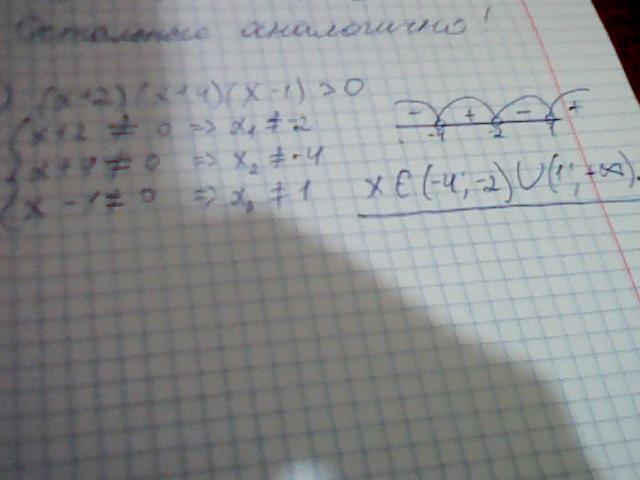 Остальные аналогично!
) (x+2)(x+4)(x-1)>0
x+2 ≠ 0 => x₁ ≠ -2
x+4 ≠ 0 => x₂ ≠ -4
x-1 ≠ 0 => x₃ ≠ 1
- + - +
-4 -2 1
x ∈ (-4; -2) ∪ (1; +∞).